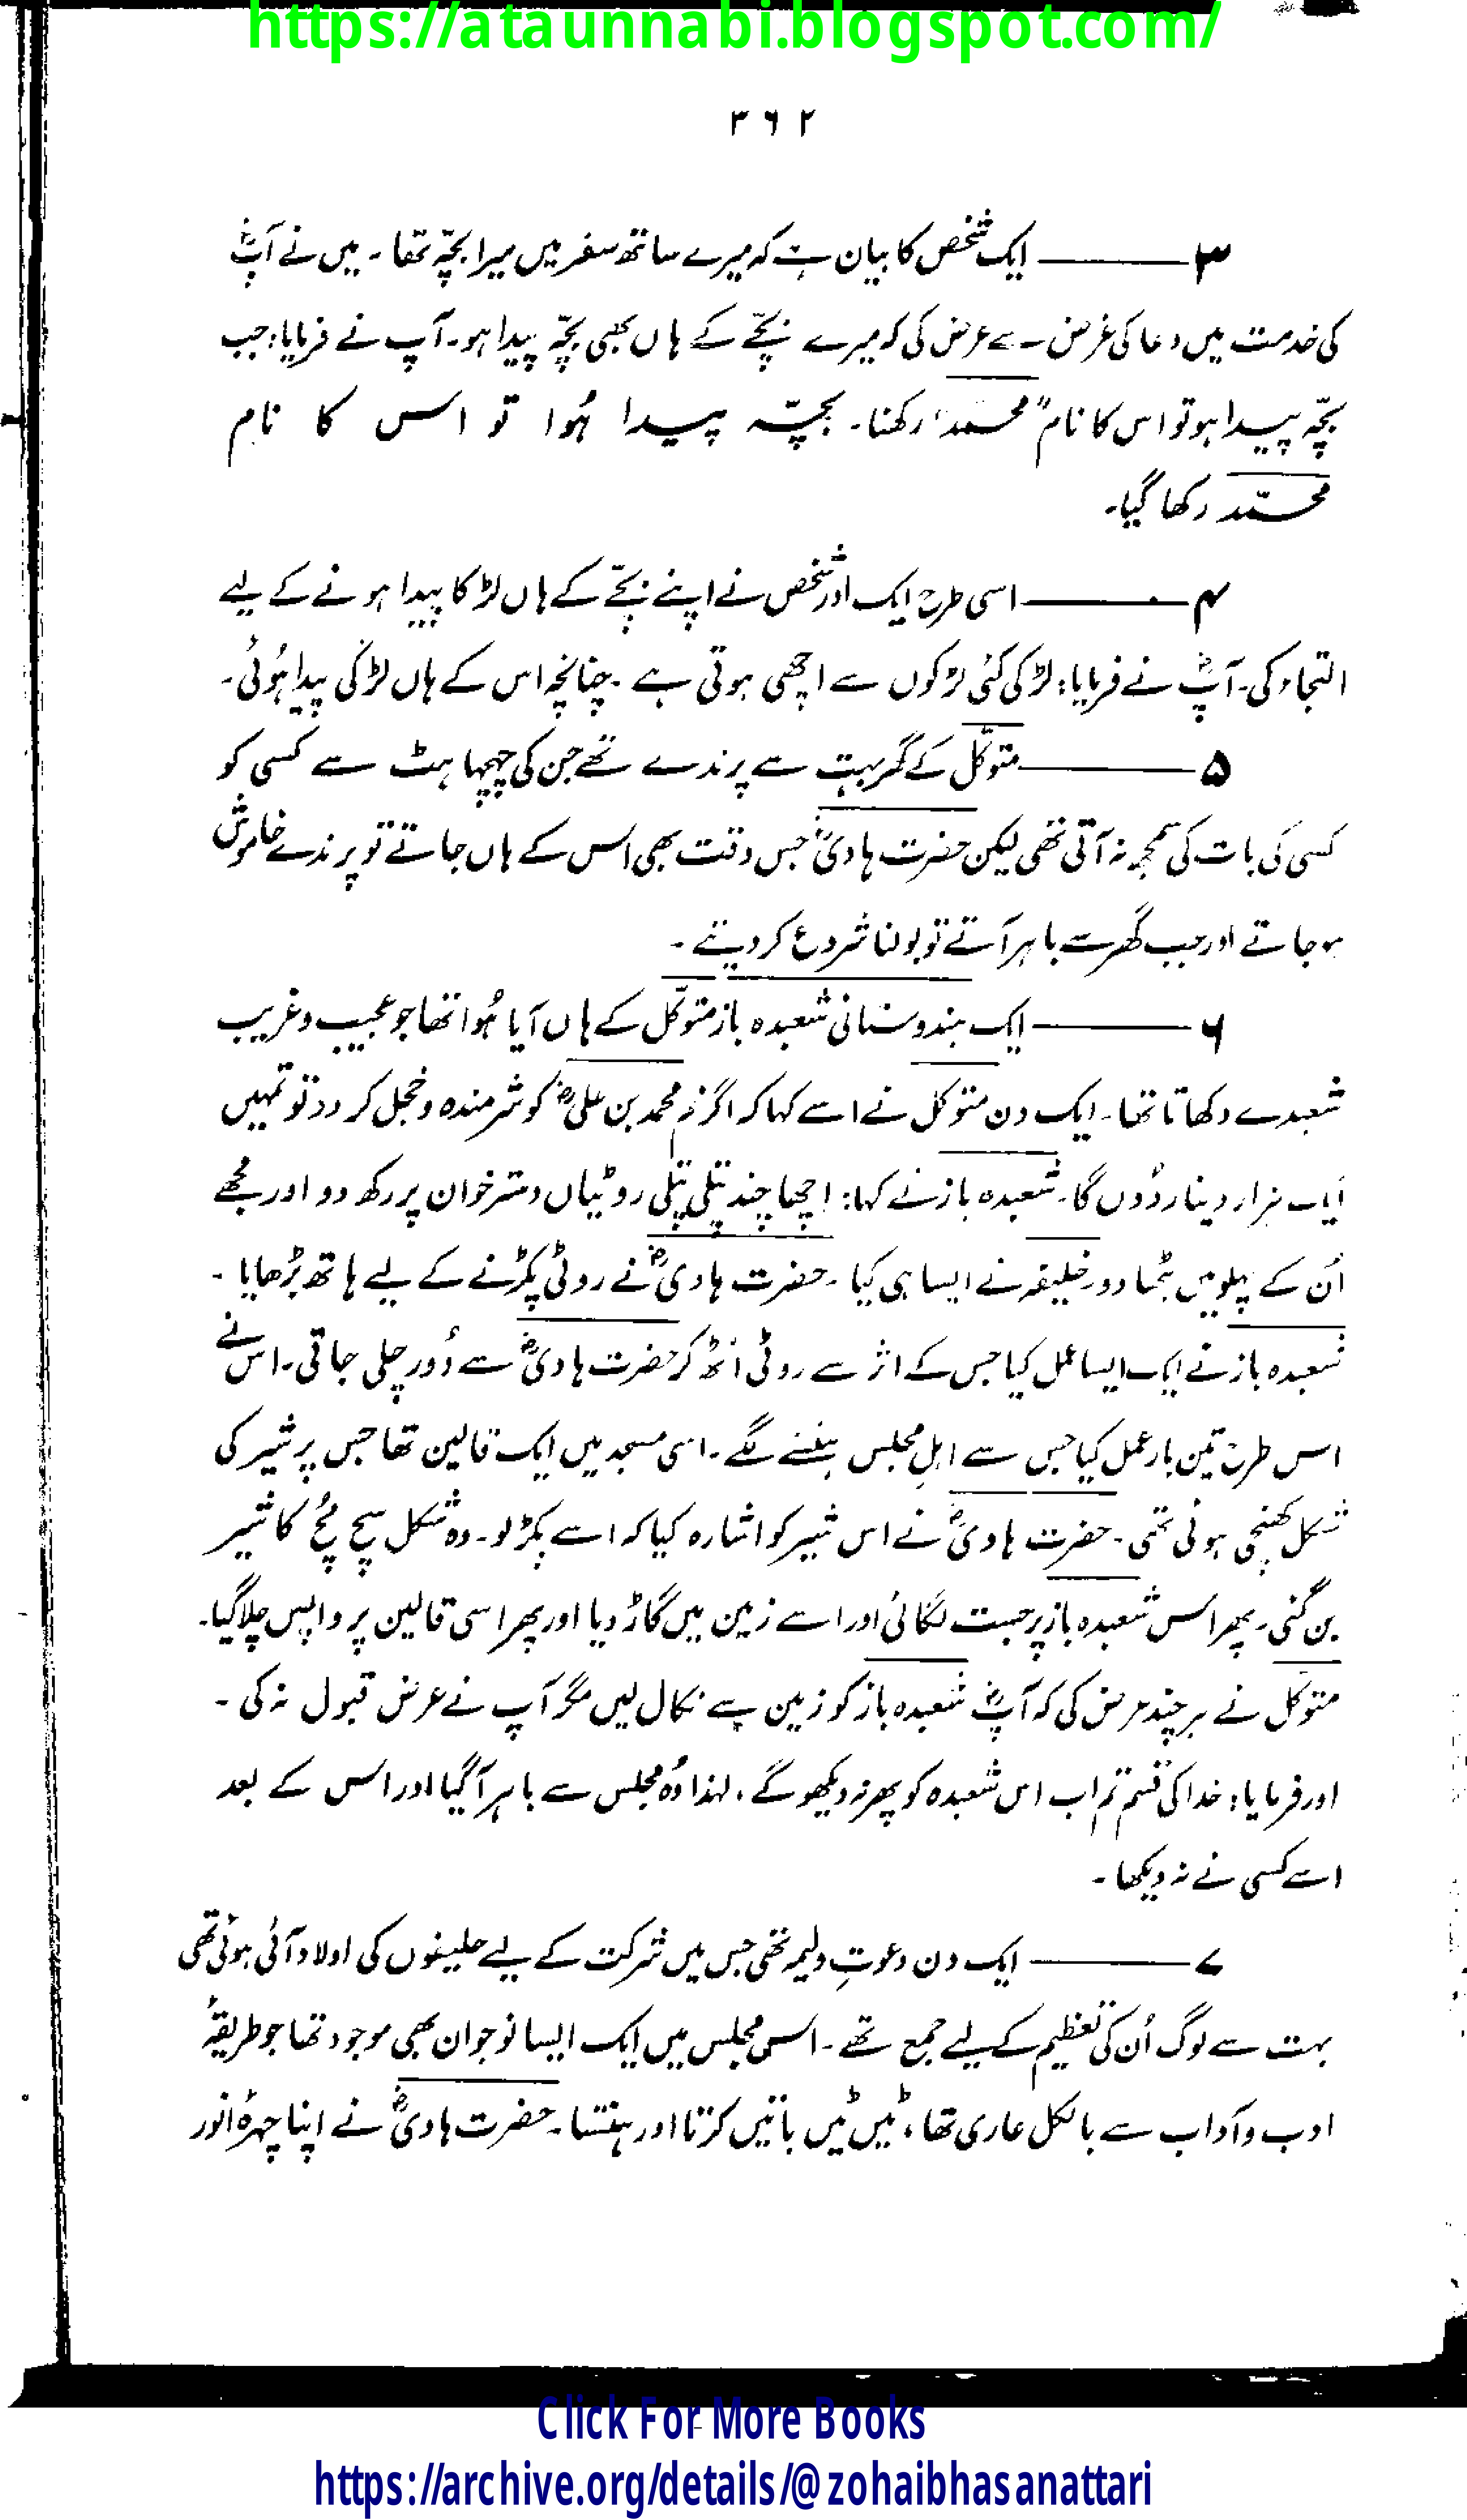 https://ataunnabi.blogspot.com/
۳۶۲
۳ــــــ ایک شخص کا بیان ہے کہ میرے ساتھ سفر میں میرا بچّہ تھا۔ میں نے آپؓ
کی خدمت میں دعا کی غرض سے عرض کی کہ میرے بچّے کے ہاں بھی بچّہ پیدا ہو۔ آپ نے فرمایا: جب
بچّہ پیدا ہو تو اس کا نام "محمّد" رکھنا۔ بچّہ پیدا ہُوا تو اس کا نام
محمّد رکھا گیا۔
۴ــــــ اسی طرح ایک اور شخص نے اپنے بچّے کے ہاں لڑکا پیدا ہونے کے لیے
التجاء کی۔ آپؓ نے فرمایا: لڑکی کئی لڑکوں سے اچھی ہوتی ہے۔ چنانچہ اس کے ہاں لڑکی پیدا ہُوئی۔
۵ــــــ متوکّل کے گھر بہت سے پرندے تھے جن کی چہچہاہٹ سے کسی کو
کسی کی بات کی سمجھ نہ آتی تھی لیکن حضرت ہادیؓ جس وقت بھی اس کے ہاں جاتے تو پرندے خاموش
ہو جاتے اور جب گھر سے باہر آتے تو بولنا شروع کر دیتے۔
۶ــــــ ایک ہندوستانی شعبدہ باز متوکّل کے ہاں آیا ہُوا تھا جو عجیب و غریب
شعبدے دکھاتا تھا۔ ایک دن متوکل نے اسے کہا کہ اگر تم محمد بن علیؓ کو شرمندہ و خجل کر دو تو تمہیں
ایک ہزار دینار دُوں گا۔ شعبدہ باز نے کہا: اچھا چند پتلی پتلی روٹیاں دسترخوان پر رکھ دو اور مجھے
اُن کے پہلو میں بٹھا دو۔ خلیفہ نے ایسا ہی کیا۔ حضرت ہادیؓ نے روٹی پکڑنے کے لیے ہاتھ بڑھایا۔
شعبدہ باز نے ایک ایسا عمل کیا جس کے اثر سے روٹی اُٹھ کر حضرت ہادیؓ سے دُور چلی جاتی۔ اس نے
اس طرح تین بار عمل کیا جس سے اہلِ مجلس ہنسنے لگے۔ اسی مسجد میں ایک قالین تھا جس پر شیر کی
شکل کھنچی ہوئی تھی۔ حضرت ہادیؓ نے اس شیر کو اشارہ کیا کہ اسے پکڑ لو۔ وہ شکل سچ مُچ کا شیر
بن گئی۔ پھر اس شعبدہ باز پر جست لگائی اور اسے زمین میں گاڑ دیا اور پھر اسی قالین پر واپس چلا گیا۔
متوکل نے ہر چند عرض کی کہ آپؓ شعبدہ باز کو زمین سے نکال لیں مگر آپ نے عرض قبول نہ کی۔
اور فرمایا: خدا کی قسم تم اب اس شعبدہ کو پھر نہ دیکھو گے، لہٰذا وُہ مجلس سے باہر آ گیا اور اس کے بعد
اسے کسی نے نہ دیکھا۔
۷ــــــ ایک دن دعوتِ ولیمہ تھی جس میں شرکت کے لیے خلیفوں کی اولاد آئی ہوئی تھی
بہت سے لوگ اُن کی تعظیم کے لیے جمع تھے۔ اس مجلس میں ایک ایسا نوجوان بھی موجود تھا جو طریقۂ
ادب و آداب سے بالکل عاری تھا، ٹیں ٹیں باتیں کرتا اور ہنستا۔ حضرت ہادیؓ نے اپنا چہرۂ انور
Click For More Books
https://archive.org/details/@zohaibhasanattari